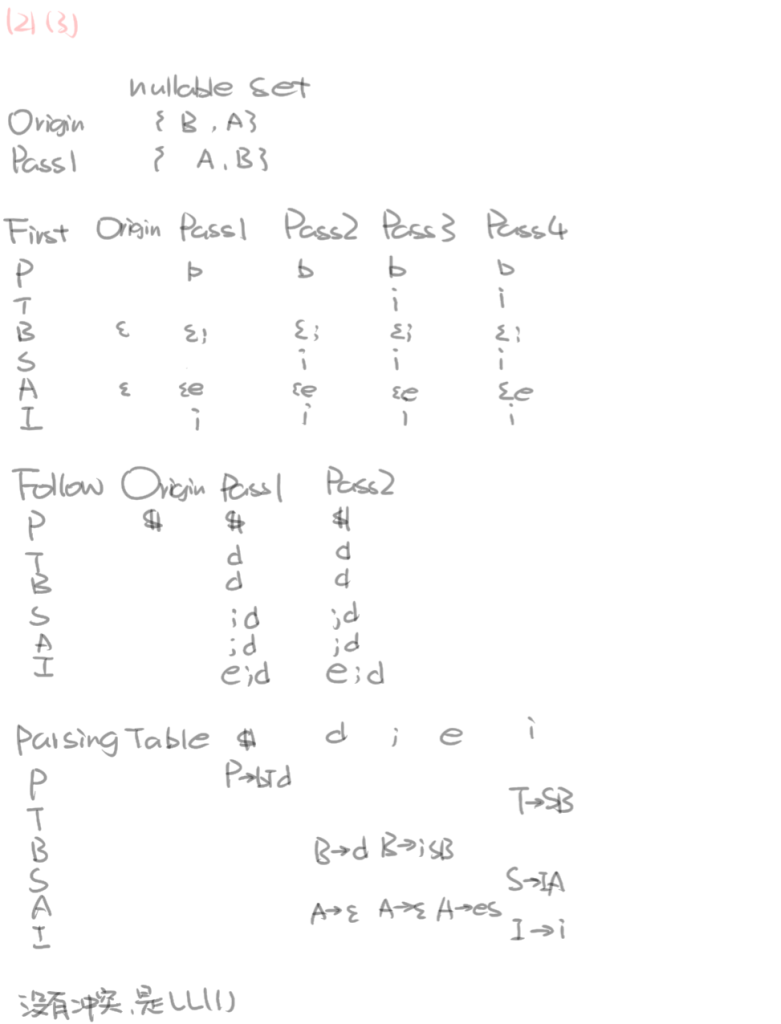 (2)(3)
nullable set
Origin { B , A}
Pass1 { A, B}
First Origin Pass1 Pass2 Pass3 Pass4
P b b b b
T i i
B ε ε; ε; ε; ε;
S i i i
A ε εe εe εe εe
I i i i i
Follow Origin Pass1 Pass2
P $ $ $
T d d
B d d
S ;d ;d
A ;d ;d
I e;d e;d
Parsing Table $ d ; e i
P P→bTd
T T→SB
B B→d B→;SB
S S→IA
A A→ε A→ε A→es
I I→i
没有冲突,是LL(1)